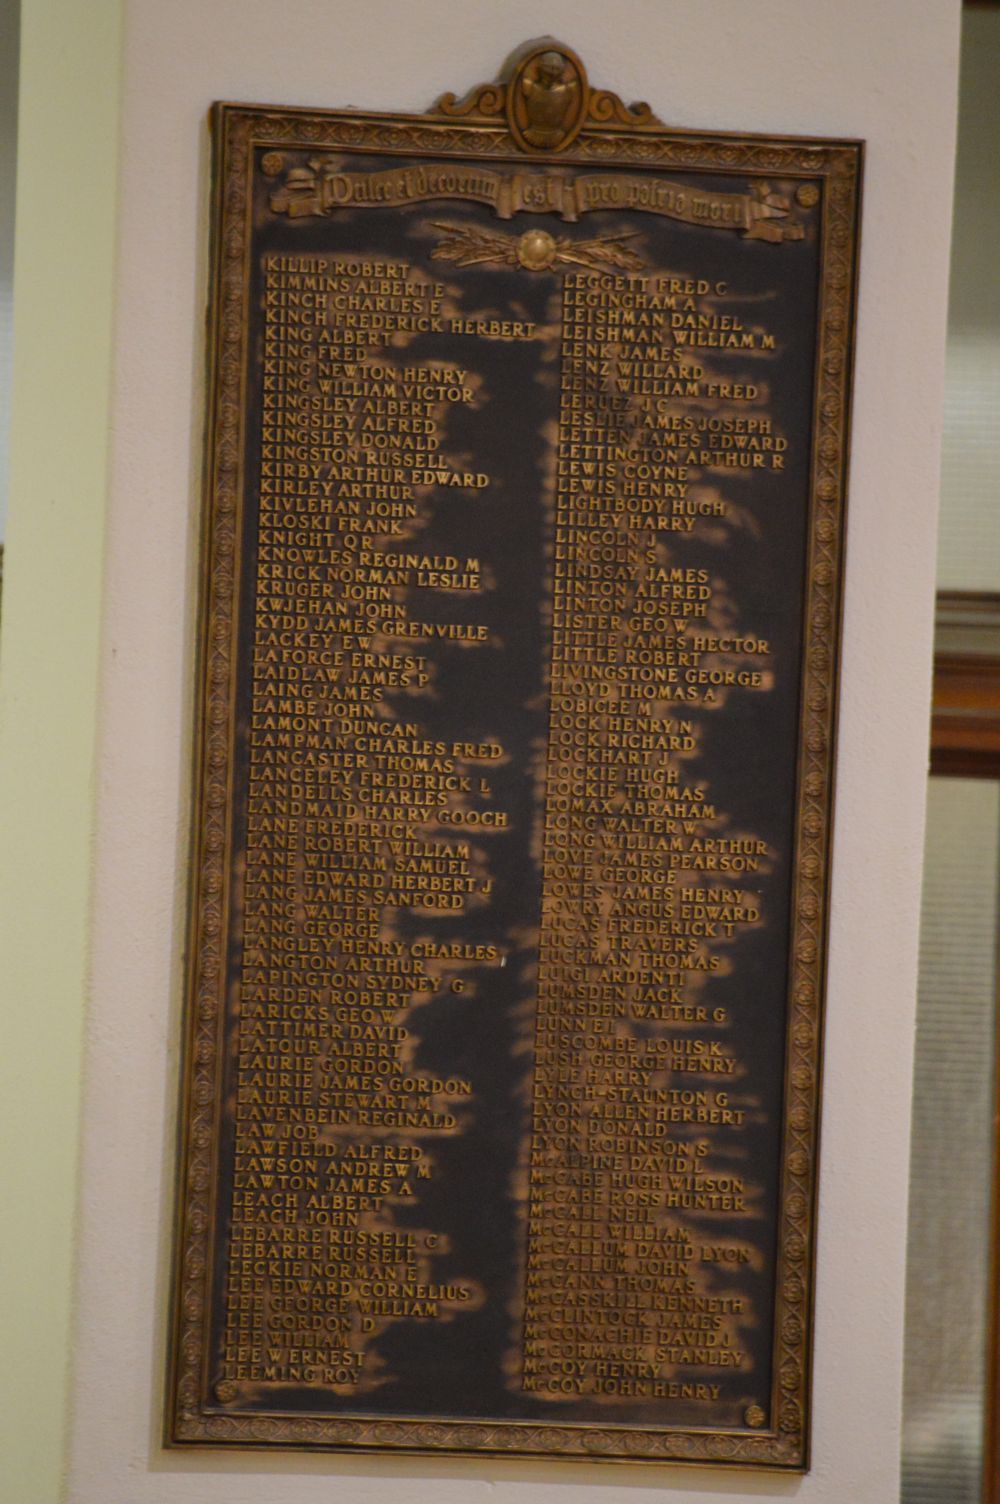 Dulce et decorum est pro patria mori
KILLIP ROBERT
KIMMINS ALBERT E
KINCH CHARLES E
KINCH FREDERICK HERBERT
KING ALBERT
KING FRED
KING NEWTON HENRY
KING WILLIAM VICTOR
KINGSLEY ALBERT
KINGSLEY ALFRED
KINGSLEY DONALD
KINGSTON RUSSELL
KIRBY ARTHUR EDWARD
KIRLEY ARTHUR
KIVLEHAN JOHN
KLOSKI FRANK
KNIGHT Q R
KNOWLES REGINALD M
KRICK NORMAN LESLIE
KRUGER JOHN
KWJEHAN JOHN
KYDD JAMES GRENVILLE
LACKEY E W
LAFORCE ERNEST
LAIDLAW JAMES P
LAING JAMES
LAMBE JOHN
LAMONT DUNCAN
LAMPMAN CHARLES FRED
LANCASTER THOMAS
LANCELEY FREDERICK L
LANDELLS CHARLES
LANDMAID HARRY GOOCH
LANE FREDERICK
LANE ROBERT WILLIAM
LANE WILLIAM SAMUEL
LANG EDWARD HERBERT J
LANG JAMES SANFORD
LANG WALTER
LANG GEORGE
LANGLEY HENRY CHARLES
LANGTON ARTHUR
LAPINGTON SYDNEY G
LARDEN ROBERT
LARICKS GEO W
LATTIMER DAVID
LATOUR ALBERT
LAURIE GORDON
LAURIE JAMES GORDON
LAURIE STEWART M
LAVENBEIN REGINALD
LAW JOB
LAWFIELD ALFRED
LAWSON ANDREW M
LAWTON JAMES A
LEACH ALBERT
LEACH JOHN
LEBARRE RUSSELL C
LEBARRE RUSSELL
LECKIE NORMAN E
LEE EDWARD CORNELIUS
LEE GEORGE WILLIAM
LEE GORDON D
LEE WILLIAM
LEE W ERNEST
LEEMING ROY
LEGGETT FRED C
LEGINGHAM A
LEISHMAN DANIEL
LEISHMAN WILLIAM M
LENK JAMES
LENZ WILLARD
LENZ WILLIAM FRED
LERUEZ J C
LESLIE JAMES JOSEPH
LETTEN JAMES EDWARD
LETTINGTON ARTHUR R
LEWIS COYNE
LEWIS HENRY
LIGHTBODY HUGH
LILLEY HARRY
LINCOLN J
LINCOLN S
LINDSAY JAMES
LINTON ALFRED
LINTON JOSEPH
LISTER GEO W
LITTLE JAMES HECTOR
LITTLE ROBERT
LIVINGSTONE GEORGE
LLOYD THOMAS A
LOBICEE M
LOCK HENRY N
LOCK RICHARD
LOCKHART J
LOCKIE HUGH
LOCKIE THOMAS
LOMAX ABRAHAM
LONG WALTER W
LONG WILLIAM ARTHUR
LOVE JAMES PEARSON
LOWE GEORGE
LOWES JAMES HENRY
LOWRY ANGUS EDWARD
LUCAS FREDERICK T
LUCAS TRAVERS
LUCKMAN THOMAS
LUIGI ARDENTI
LUMSDEN JACK
LUMSDEN WALTER G
LUNN E J
LUSCOMBE LOUIS K
LUSH GEORGE HENRY
LYLE HARRY
LYNCH-STAUNTON G
LYON ALLEN HERBERT
LYON DONALD
LYON ROBINSON S
McALPINE DAVID L
McCABE HUGH WILSON
McCABE ROSS HUNTER
McCALL NEIL
McCALL WILLIAM
McCALLUM DAVID LYON
McCALLUM JOHN
McCANN THOMAS
McCASSKILL KENNETH
McCLINTOCK JAMES
McCONACHIE DAVID J
McCORMACK STANLEY
McCOY HENRY
McCOY JOHN HENRY